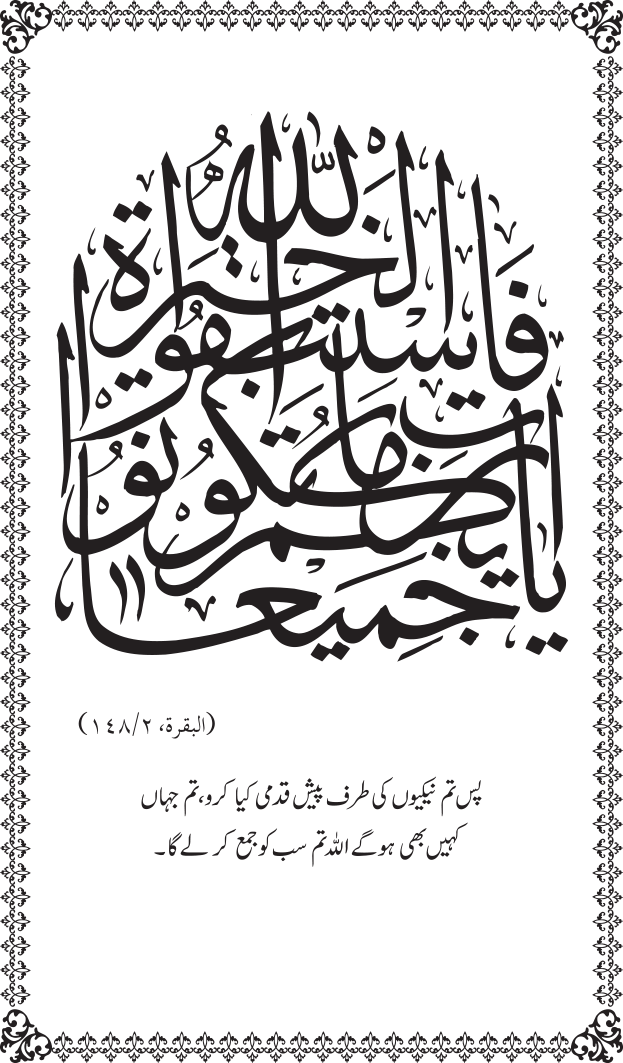 فاستبقوا الخيرات أين ما تكونوا يأت بكم الله جميعا
(البقرة، ١٤٨/٢)
پس تم نیکیوں کی طرف پیش قدمی کیا کرو، تم جہاں
کہیں بھی ہوگے اللہ تم سب کو جمع کر لے گا۔